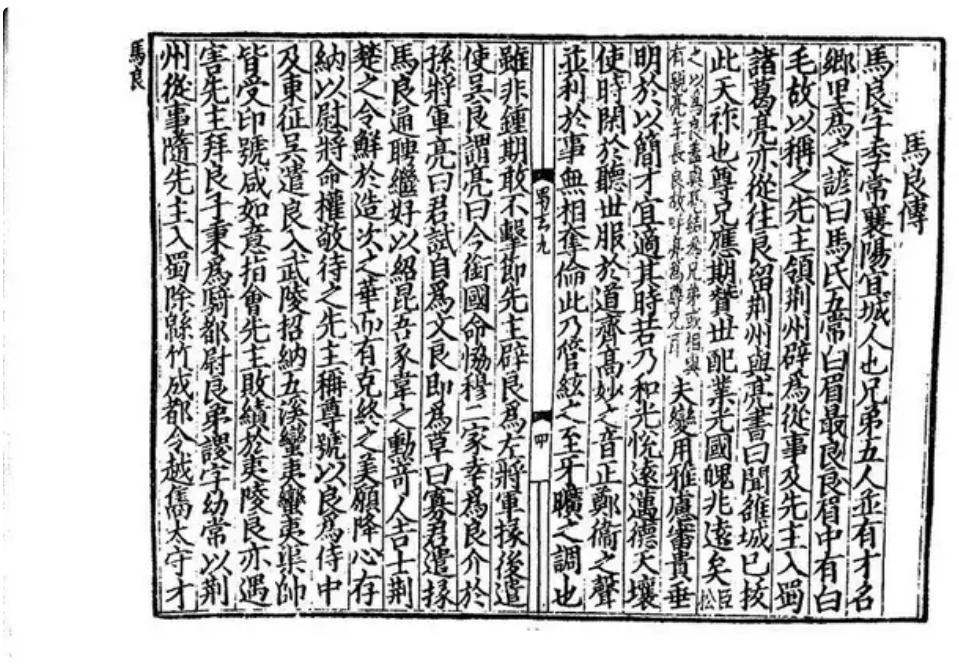 馬良傳
馬良字季常襄陽宜城人也兄弟五人並有才名
鄉里為之諺曰馬氏五常白眉最良良眉中有白
毛故以稱之先主領荆州辟為從事及先主入蜀
諸葛亮亦從往良留荆州與亮書曰聞雒城已拔
此天祚也尊兄應期贊世配業光國魄兆遠矣臣松
之以為良蓋與亮結為兄弟或相與
有親亮年長良故呼亮為尊兄耳
夫變用雅慮審貴垂
明於以簡才宜適其時若乃和光恱遠邁德天壤
使時閑於聽世服於道齊髙妙之音正鄭衞之聲
並利於事無相奪倫此乃管絃之至牙曠之調也
雖非鍾期敢不擊節先主辟良為左將軍掾後遣
使吳良謂亮曰今銜國命恊穆二家幸為良介於
孫將軍亮曰君試自為文良即為草曰寡君遣掾
馬良通聘繼好以紹昆吾豕韋之勲竒人吉士荆
楚之令鮮於造次之華而有克終之美願降心存
納以慰將命權敬待之先主稱尊號以良為侍中
及東征吳遣良入武陵招納五溪蠻夷蠻夷渠帥
皆受印號咸如意指會先主敗績於夷陵良亦遇
害先主拜良子秉為騎都尉良弟謖字幼常以荆
州從事隨先主入蜀除緜竹成都令越嶲太守才
蜀志九
四
馬良